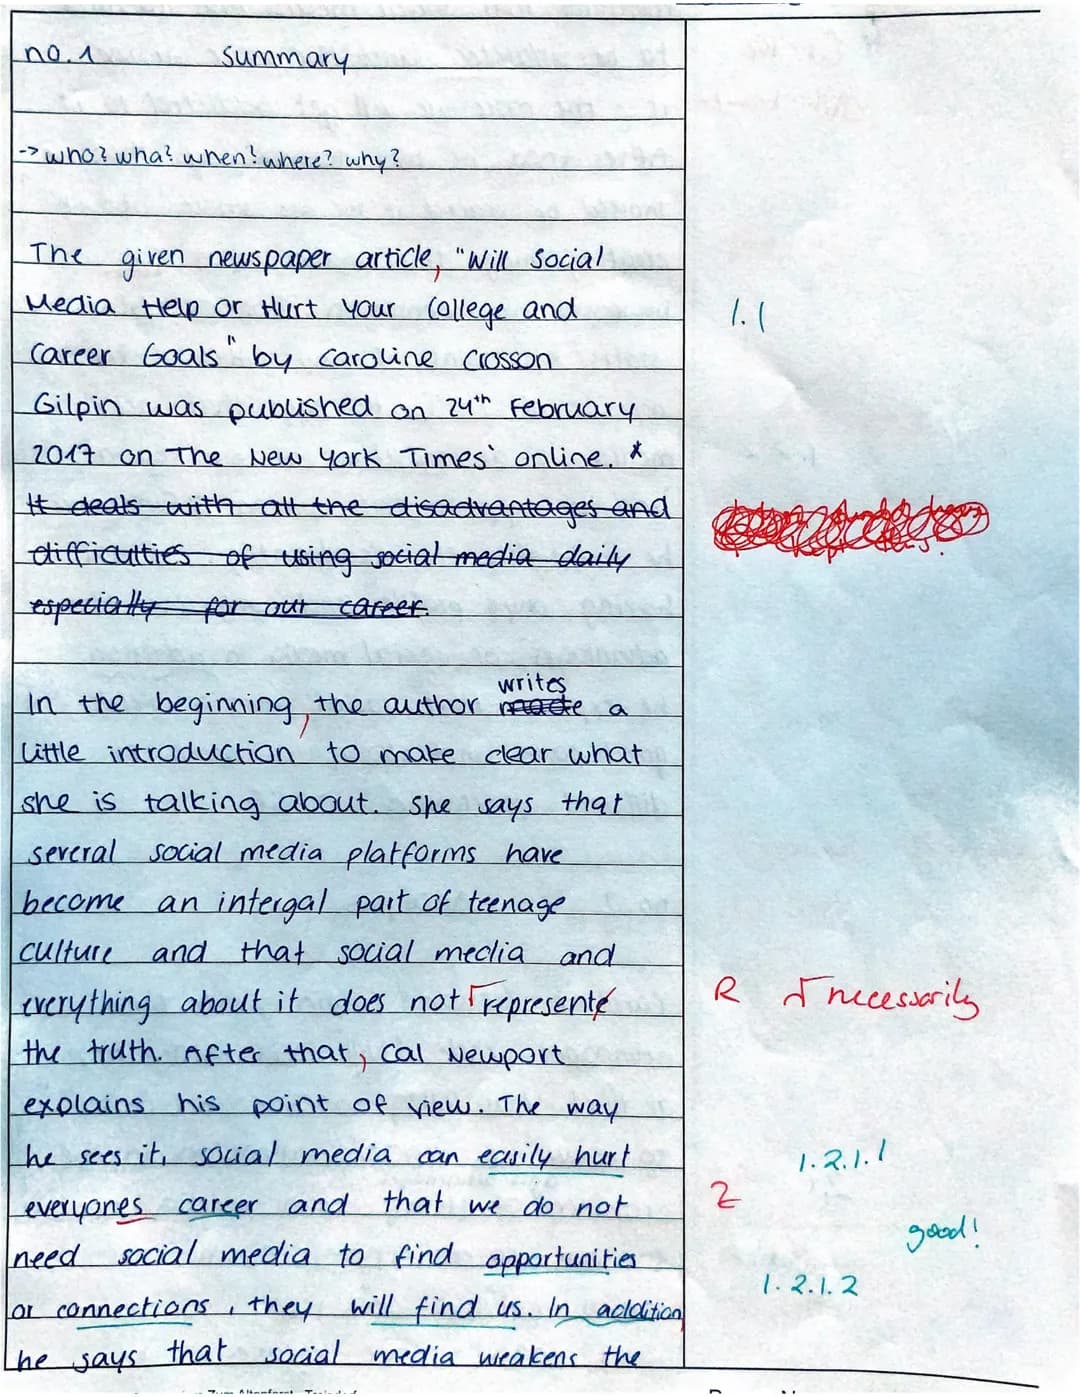 no. 1 Summary
-> who? wha? when? where? why?
The given newspaper article, "Will Social
Media Help or Hurt your College and
Career Goals" by Caroline Crosson
Gilpin was published on 24th February
2017 on The New York Times' online. *
It deals with all the disadvantages and
difficulties of using social media daily
especially for our career.
writes
In the beginning, the author made a
little introduction to make clear what
she is talking about. She says that
several social media platforms have
become an intergal part of teenage
culture and that social media and
everything about it does not represente
the truth. After that, Cal Newport
explains his point of view. The way
he sees it, social media can easily hurt
everyones career and that we do not
need social media to find opportunities
or connections, they will find us. In addition
he says that social media weakens the
1.1
R necessarily
1.2.1.1
Z
good!
1.2.1.2